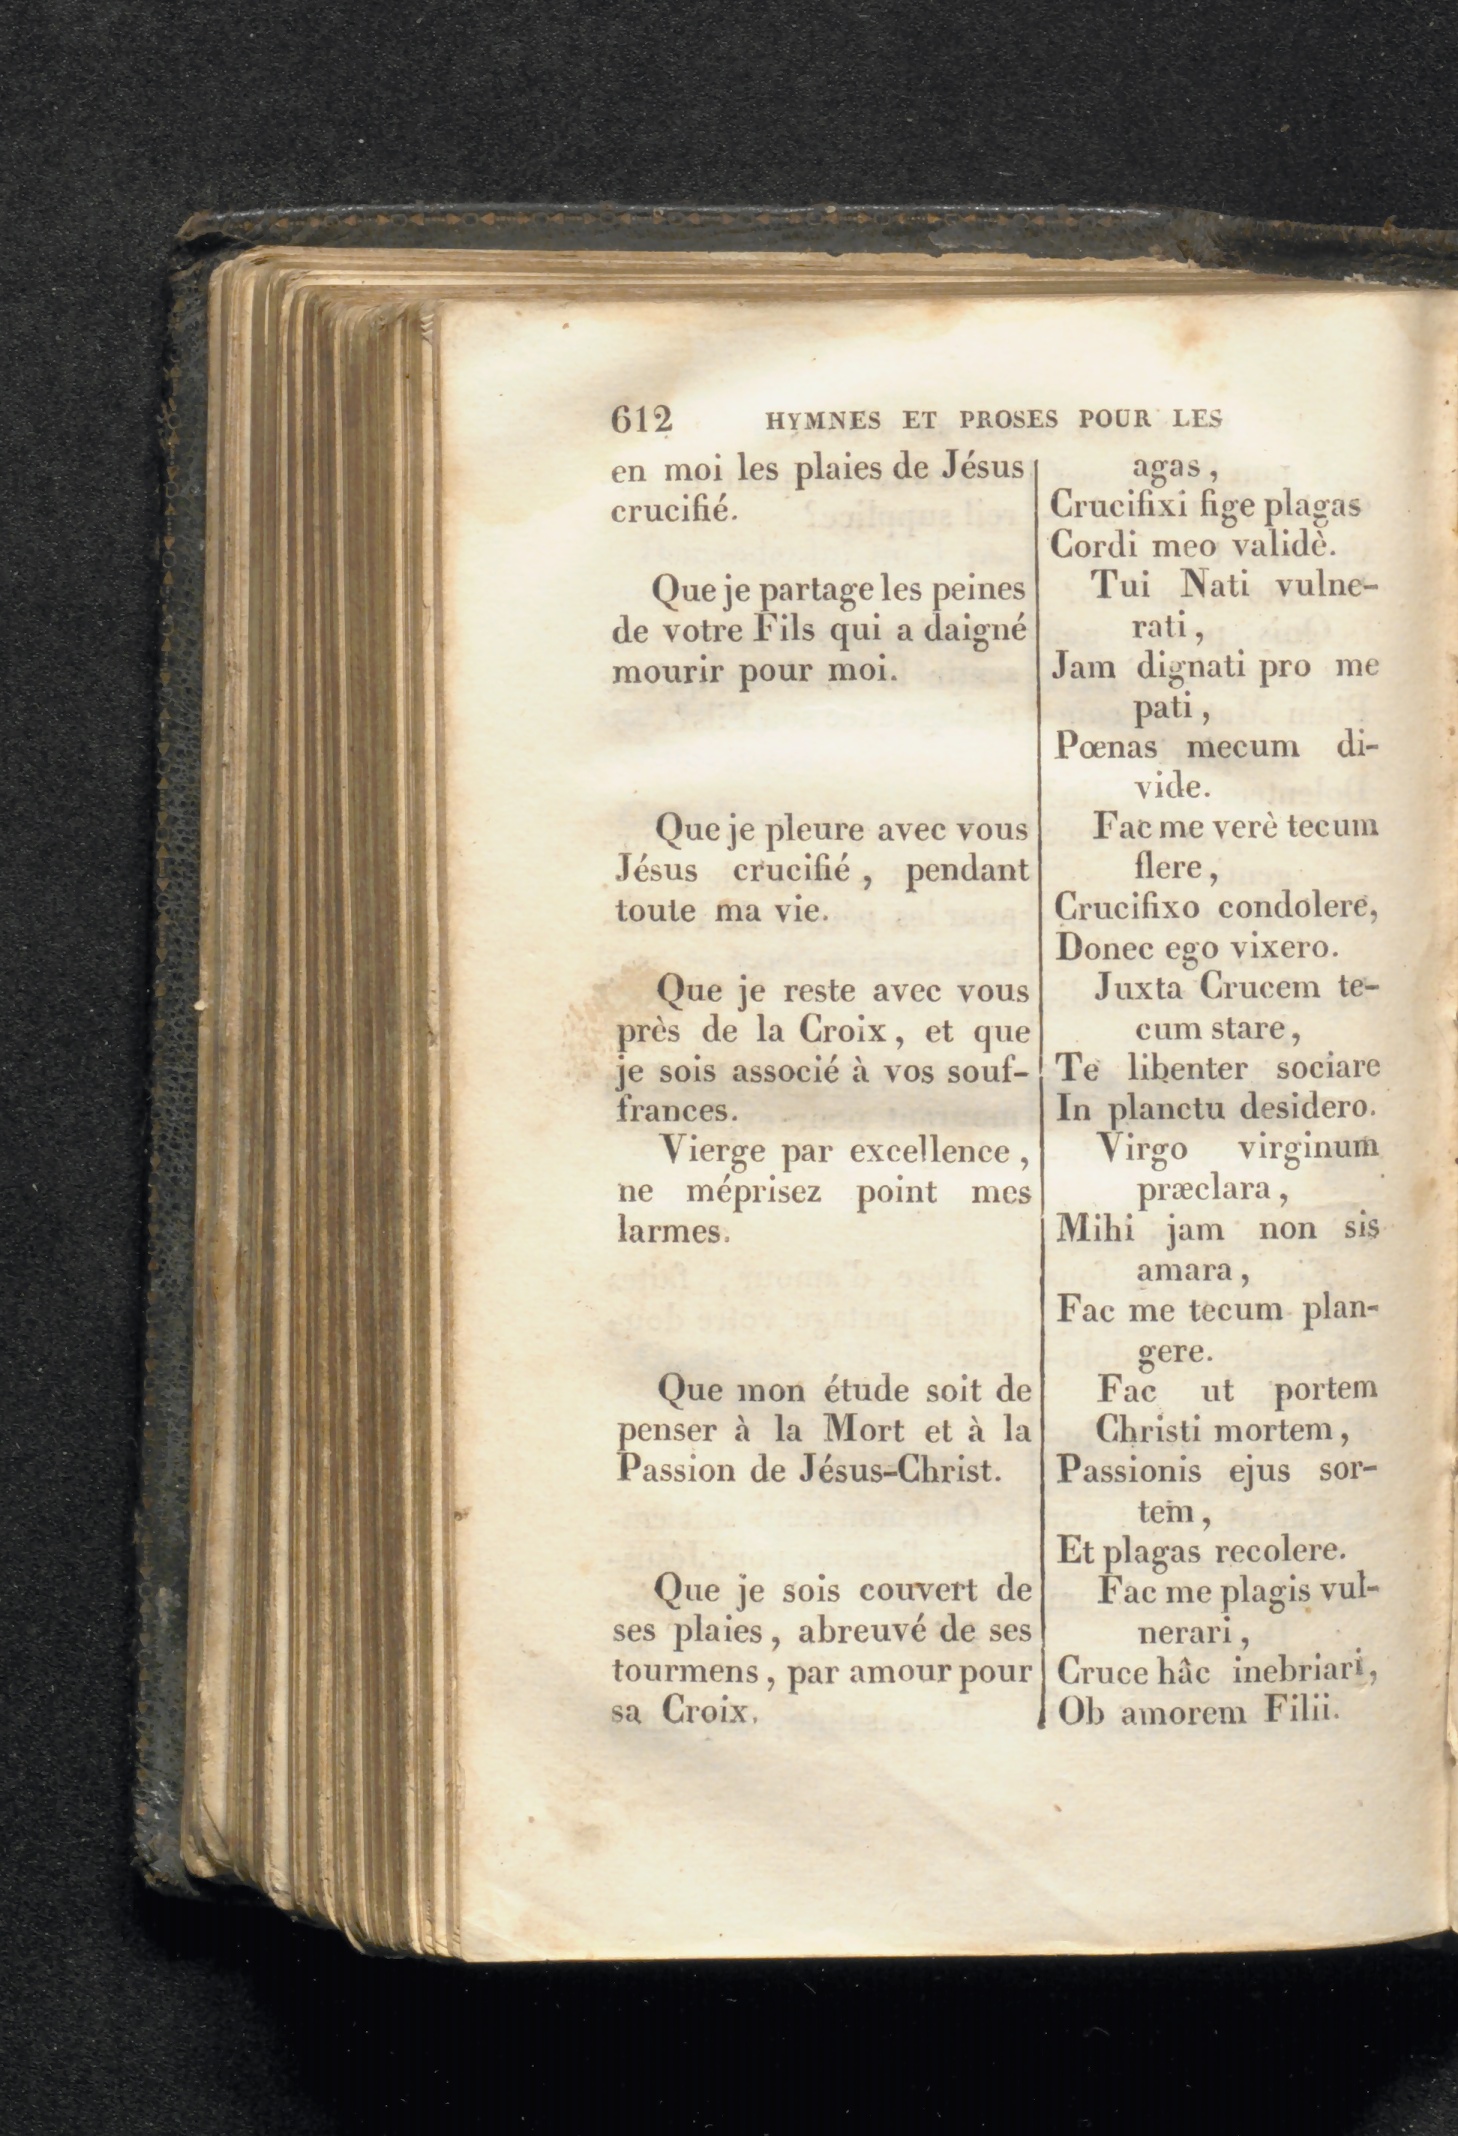 612 HYMNES ET PROSES POUR LES
en moi les plaies de Jésus
crucifié.
Que je partage les peines
de votre Fils qui a daigné
mourir pour moi.
Que je pleure avec vous
Jésus crucifié, pendant
toute ma vie.
Que je reste avec vous
près de la Croix, et que
je sois associé à vos souf-
frances.
Vierge par excellence,
ne méprisez point mes
larmes.
Que mon étude soit de
penser à la Mort et à la
Passion de Jésus-Christ.
Que je sois couvert de
ses plaies, abreuvé de ses
tourmens, par amour pour
sa Croix.
agas,
Crucifixi fige plagas
Cordi meo validè.
Tui Nati vulne-
rati,
Jam dignati pro me
pati,
Pœnas mecum di-
vide.
Fac me verè tecum
flere,
Crucifixo condolere,
Donec ego vixero.
Juxta Crucem te-
cum stare,
Te libenter sociare
In planctu desidero.
Virgo virginum
præclara,
Mihi jam non sis
amara,
Fac me tecum plan-
gere.
Fac ut portem
Christi mortem,
Passionis ejus sor-
tem,
Et plagas recolere.
Fac me plagis vul-
nerari,
Cruce hâc inebriari,
Ob amorem Filii.